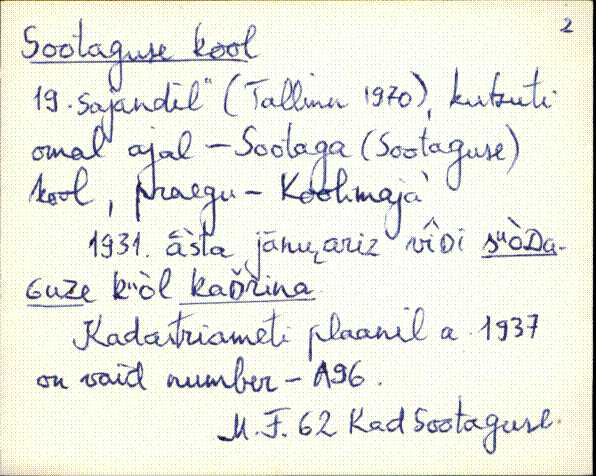 2
Sootaguse kool
19. sajandil" (Tallinn 1970), kutsuti
omal ajal – Sootaga (Sootaguse)
kool, praegu – Koolimaja
1931. āsta jānuariz vîDi
kool
Kadastriameti plaanil a. 1937
on vaid number – A96.
M. F. 62 Kad Sootaguse.